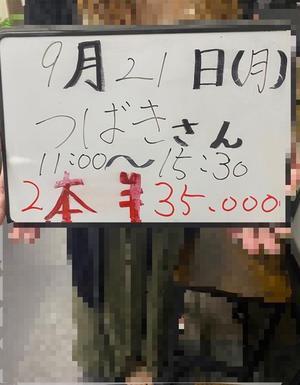 9月21日(月)
つばきさん
11:00～15:30
2本 ¥35.000